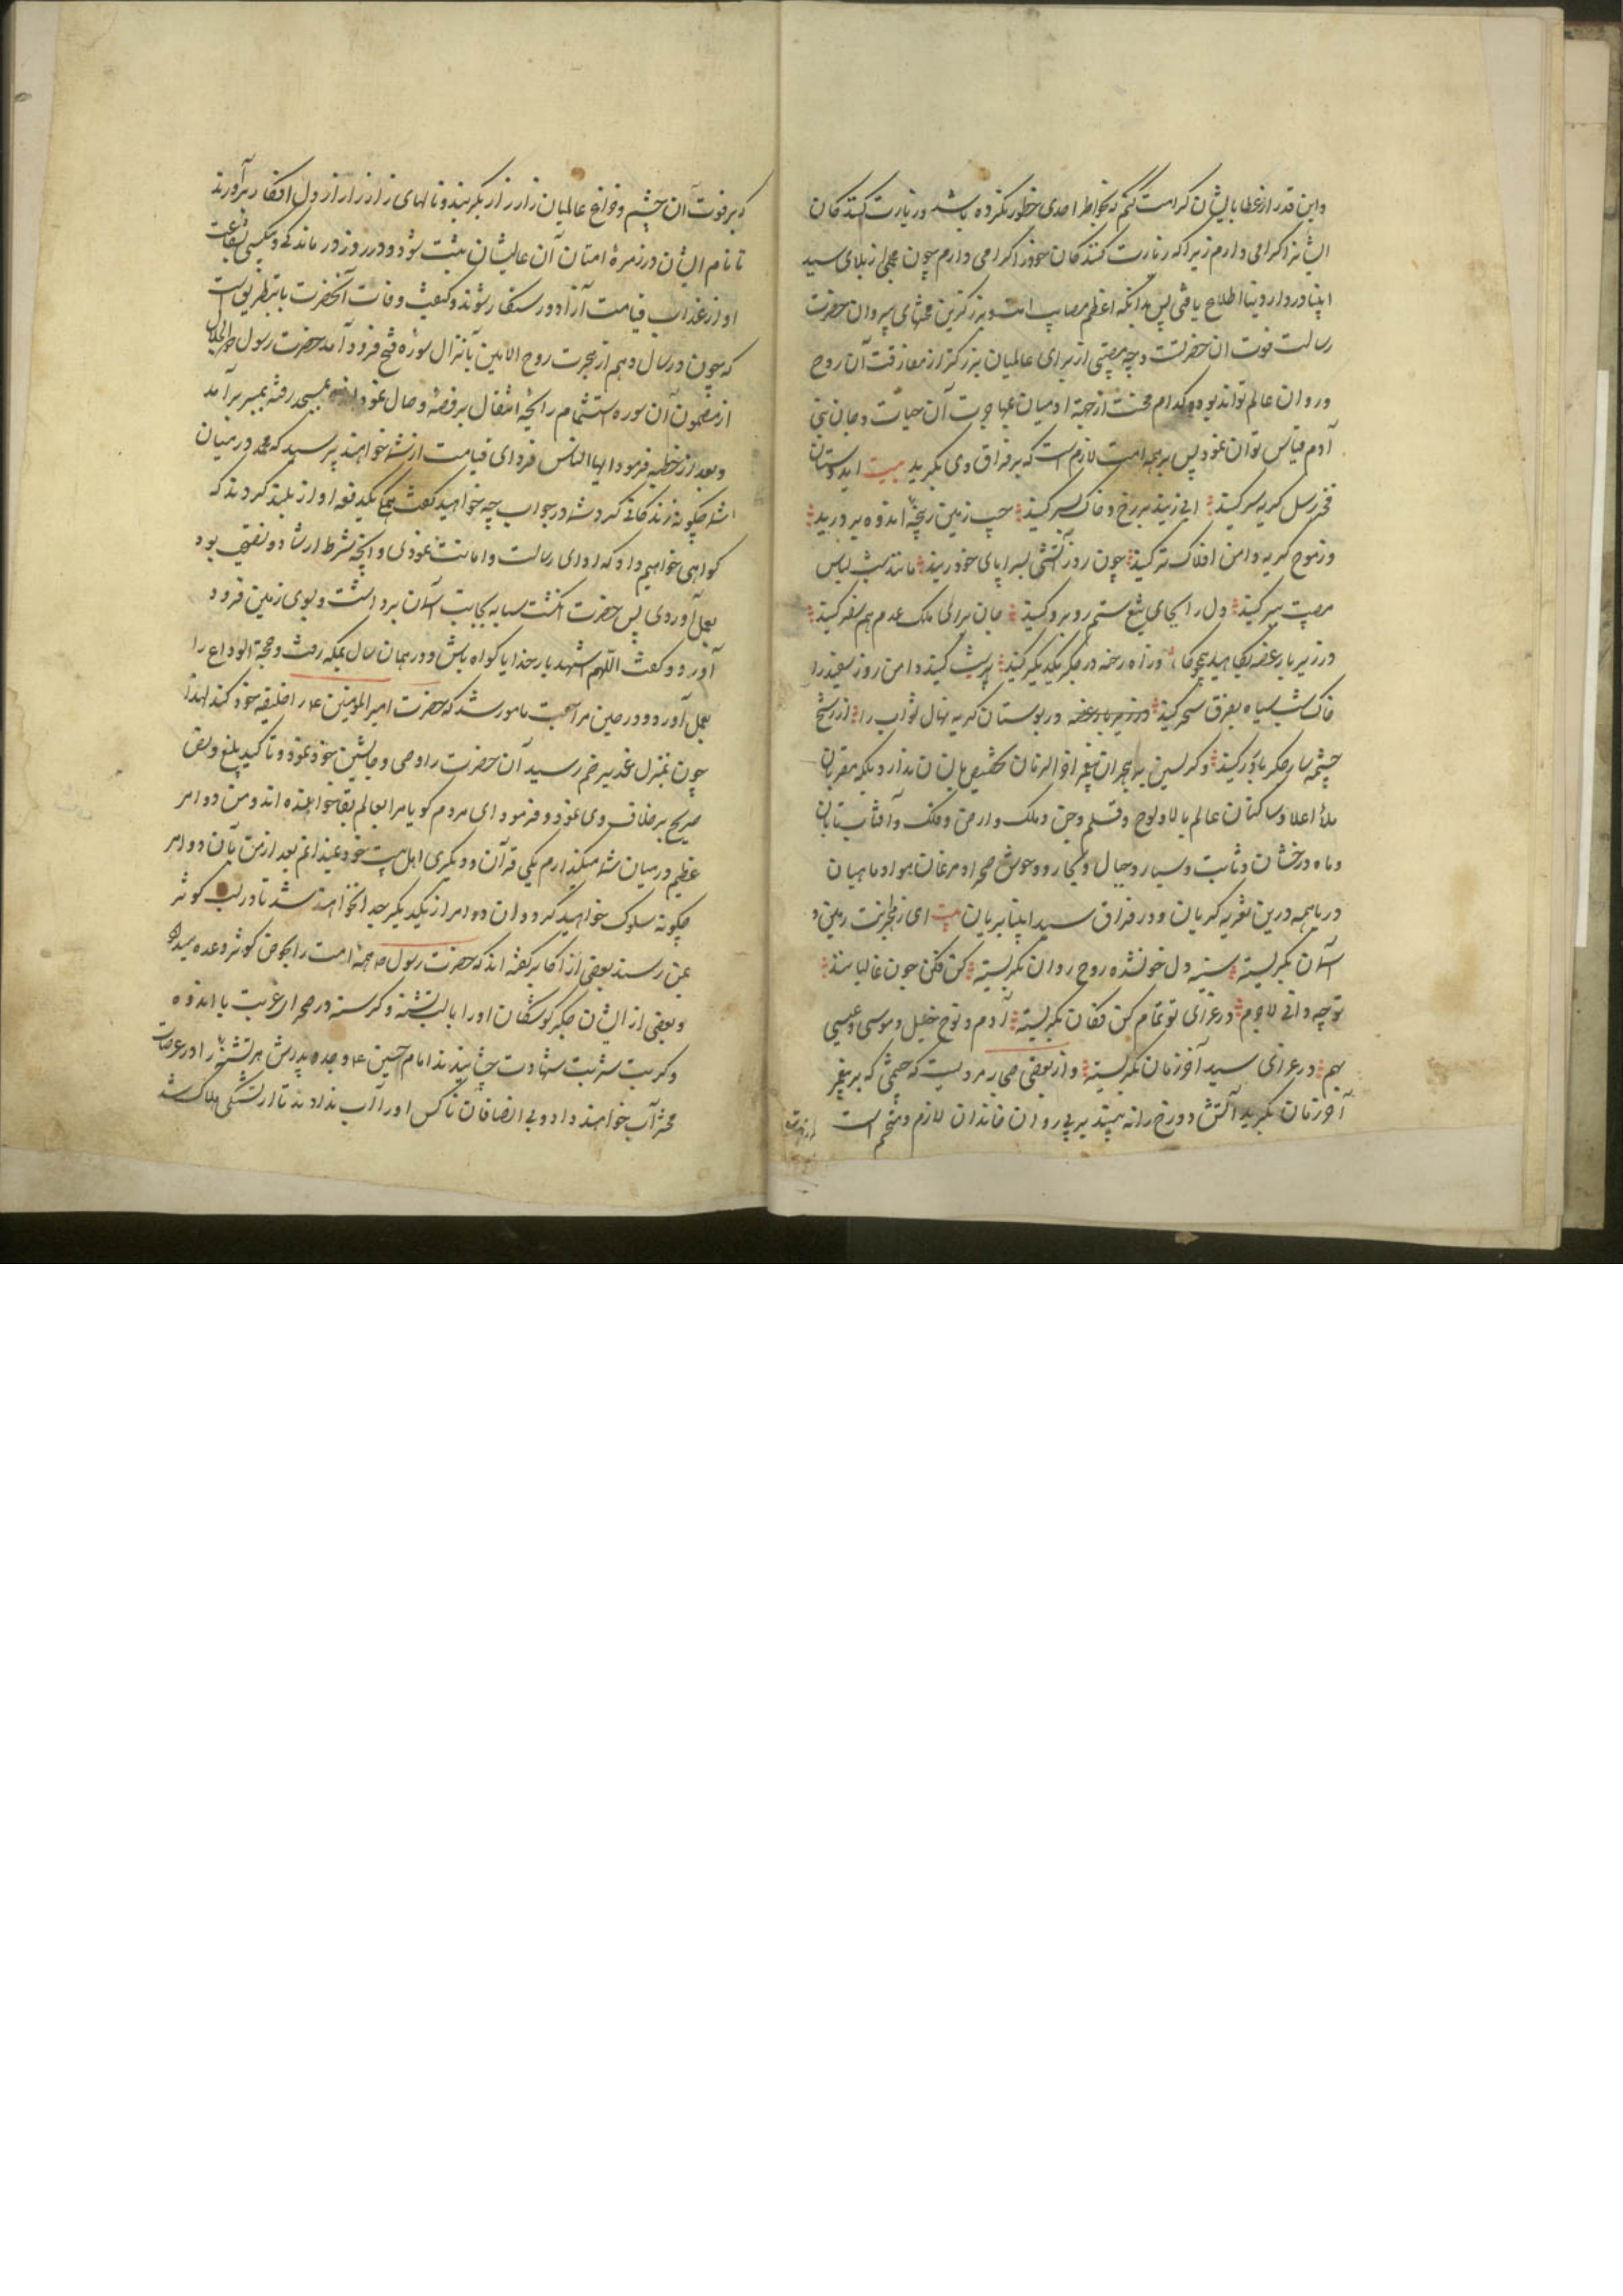 واین قدر از عطا بایشان کرامت کنم که بخواطر احدی خطور نکرده باشد و زیارت کنندکان
ایشانرا کرامی دارم زیرا که زیارت کنندکان خود را کرامی دارم چون مجملی از بلای سید
انبیا در دار دنیا اطلاع یافتی پس بدانکه اعظم مصایب است و بزرکترین محنتهای پیروان حضرت
رسالت فوت ان حضرتست و چه مصیبتی از برای عالمیان بزرکتر از مفارقت آن روح
و روان عالم تواند بود و کدام محنت از جهة ادمیان مهاجرت آن حیات و جان بنی
آدم قیاس توان نمود پس بر همه امت لازم است که بر فراق وی بکریید بیت ایدوستان
فخر رسل کریه سر کنید از دیده بر رخ و خاک بسر کنید جیب زمین ز پنجه اندوه بر درید
وز موج کریه دامن افلاک تر کنید چون روز آتشی بسراپای خود زنید مانند شب لباس
مصیبت ببر کنید دل را بجای تیغ ستم روبرو کنید جان برای ملک عدم هم سفر کنید
در زیر بار غصه بکاهید همچو ماه وز آه رخنه در جکر یکدیکر کنید پر شب کنید دامن روز سفید را
خاک سیاه بفرق سحر کنید در بوستان کریه نهال ثواب را از رشح
چشمه سار جکر بارور کنید و کریستن بر هجران پیغمبر اخر الزمان تخصیص بانسان ندارد بلکه مقربان
ملاء اعلا و ساکنان عالم بالا و لوح و قلم و جن و ملک و ارض و فلک و آفتاب تابان
و ماه درخشان و ثابت و سیار و جبال و بحار و وحوش صحرا و مرغان هوا و ماهیان
دریا همه درین تعزیه کریان و در فراق سید انبیا بریان بیت ای ز هجرت زمین و
آسمان بکریسته سینه دل خونشده روح روان بکریسته
تو چه دانی لاجرم در عزای تو تمام کن فکان بکریسته آدم و نوح خلیل و موسی و عیسی
بهم در عزای سید آخر زمان بکریسته و از بعضی صحابه مرویست که چشمی که بر پیغمبر
آخر زمان بکرید آتش دوزخ را نه بیند بر پیروان خاندان لازم و متحتم است
که بر فوت آن چشم و چراغ عالمیان زار زار بکریند و نالهای زار زار از دل افکار برآورند
تا نام ایشان در زمره امتان آن عالیشان مثبت شود و در روز درماندکی و بیکسی بشفاعت
او از عذاب قیامت آزاد و رستکار شوند و کیفیت وفات آنحضرت باینطریق است
که چون در سال دهم از هجرت روح الامین بانزال سوره فتح فرود آمد حضرت رسول
از مضمون آن سوره استشمام رایحه انتقال بروضه وصال نمود بمسجد رفته بمنبر برآمد
و بعد از خطبه فرمود ایها الناس فردای قیامت از شما خواهند پرسید که محمد در میان
شما چکونه زندکانی کرد شما در جواب چه خواهید کفت همه بیکدفعه اواز بلند کردند که
کواهی خواهیم داد که ادای رسالت و امانت نمودی و آنچه شرط ارشاد و نصیحت بود
بعمل آوردی پس حضرت انکشت سبابه بجانب آسمان برداشت و بسوی زمین فرود
آورد و کفت اللهم اشهد بار خدایا کواه باش و در همان سال بمکه رفت و حجة الوداع را
بعمل آورد و در حین مراجعت مامور شد که حضرت امیر المومنین ع را خلیفه خود کند لهذا
چون بمنزل غدیر خم رسید آن حضرت را وصی و جانشین خود نمود و تاکید بلیغ و نص
صریح بر خلافت وی نمود و فرمود ای مردم کویا مرا بعالم بقا خوانده اند و من دو امر
عظیم در میان شما میکذارم یکی قرآن و دیکری اهل بیت خود نمیدانم بعد از من بآن دو امر
چکونه سلوک خواهید کرد و ان دو امر از یکدیکر جدا نخواهند شد تا در لب کوثر
بمن رسند بعضی از اکابر کفته اند که حضرت رسول ص همه امت را بحوض کوثر وعده میداد
و بعضی از ایشان جکر کوشکان او را با لب تشنه و کرسنه در صحرای غربت با اندوه
و کربت شربت شهادت چشانیدند امام حسین ع و جد و پدرش هر تشنه را در عرصات
محشر آب خواهند داد و بی انصافان ناکس او را آب ندادند تا از تشنکی هلاک شد